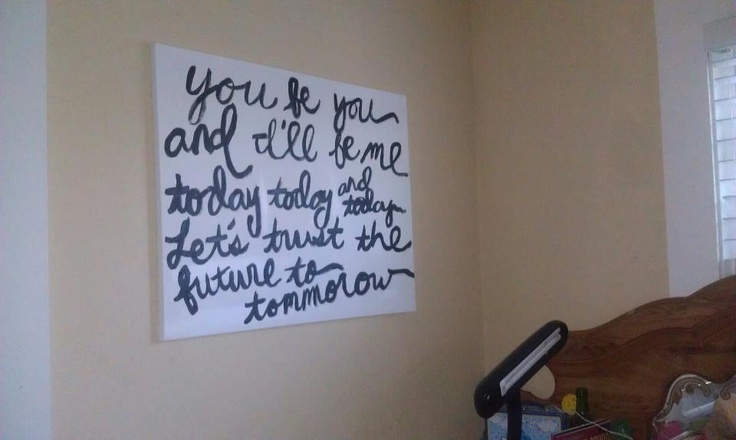 you be you
and I'll be me
today today and today
Let's trust the
future to
tommorow